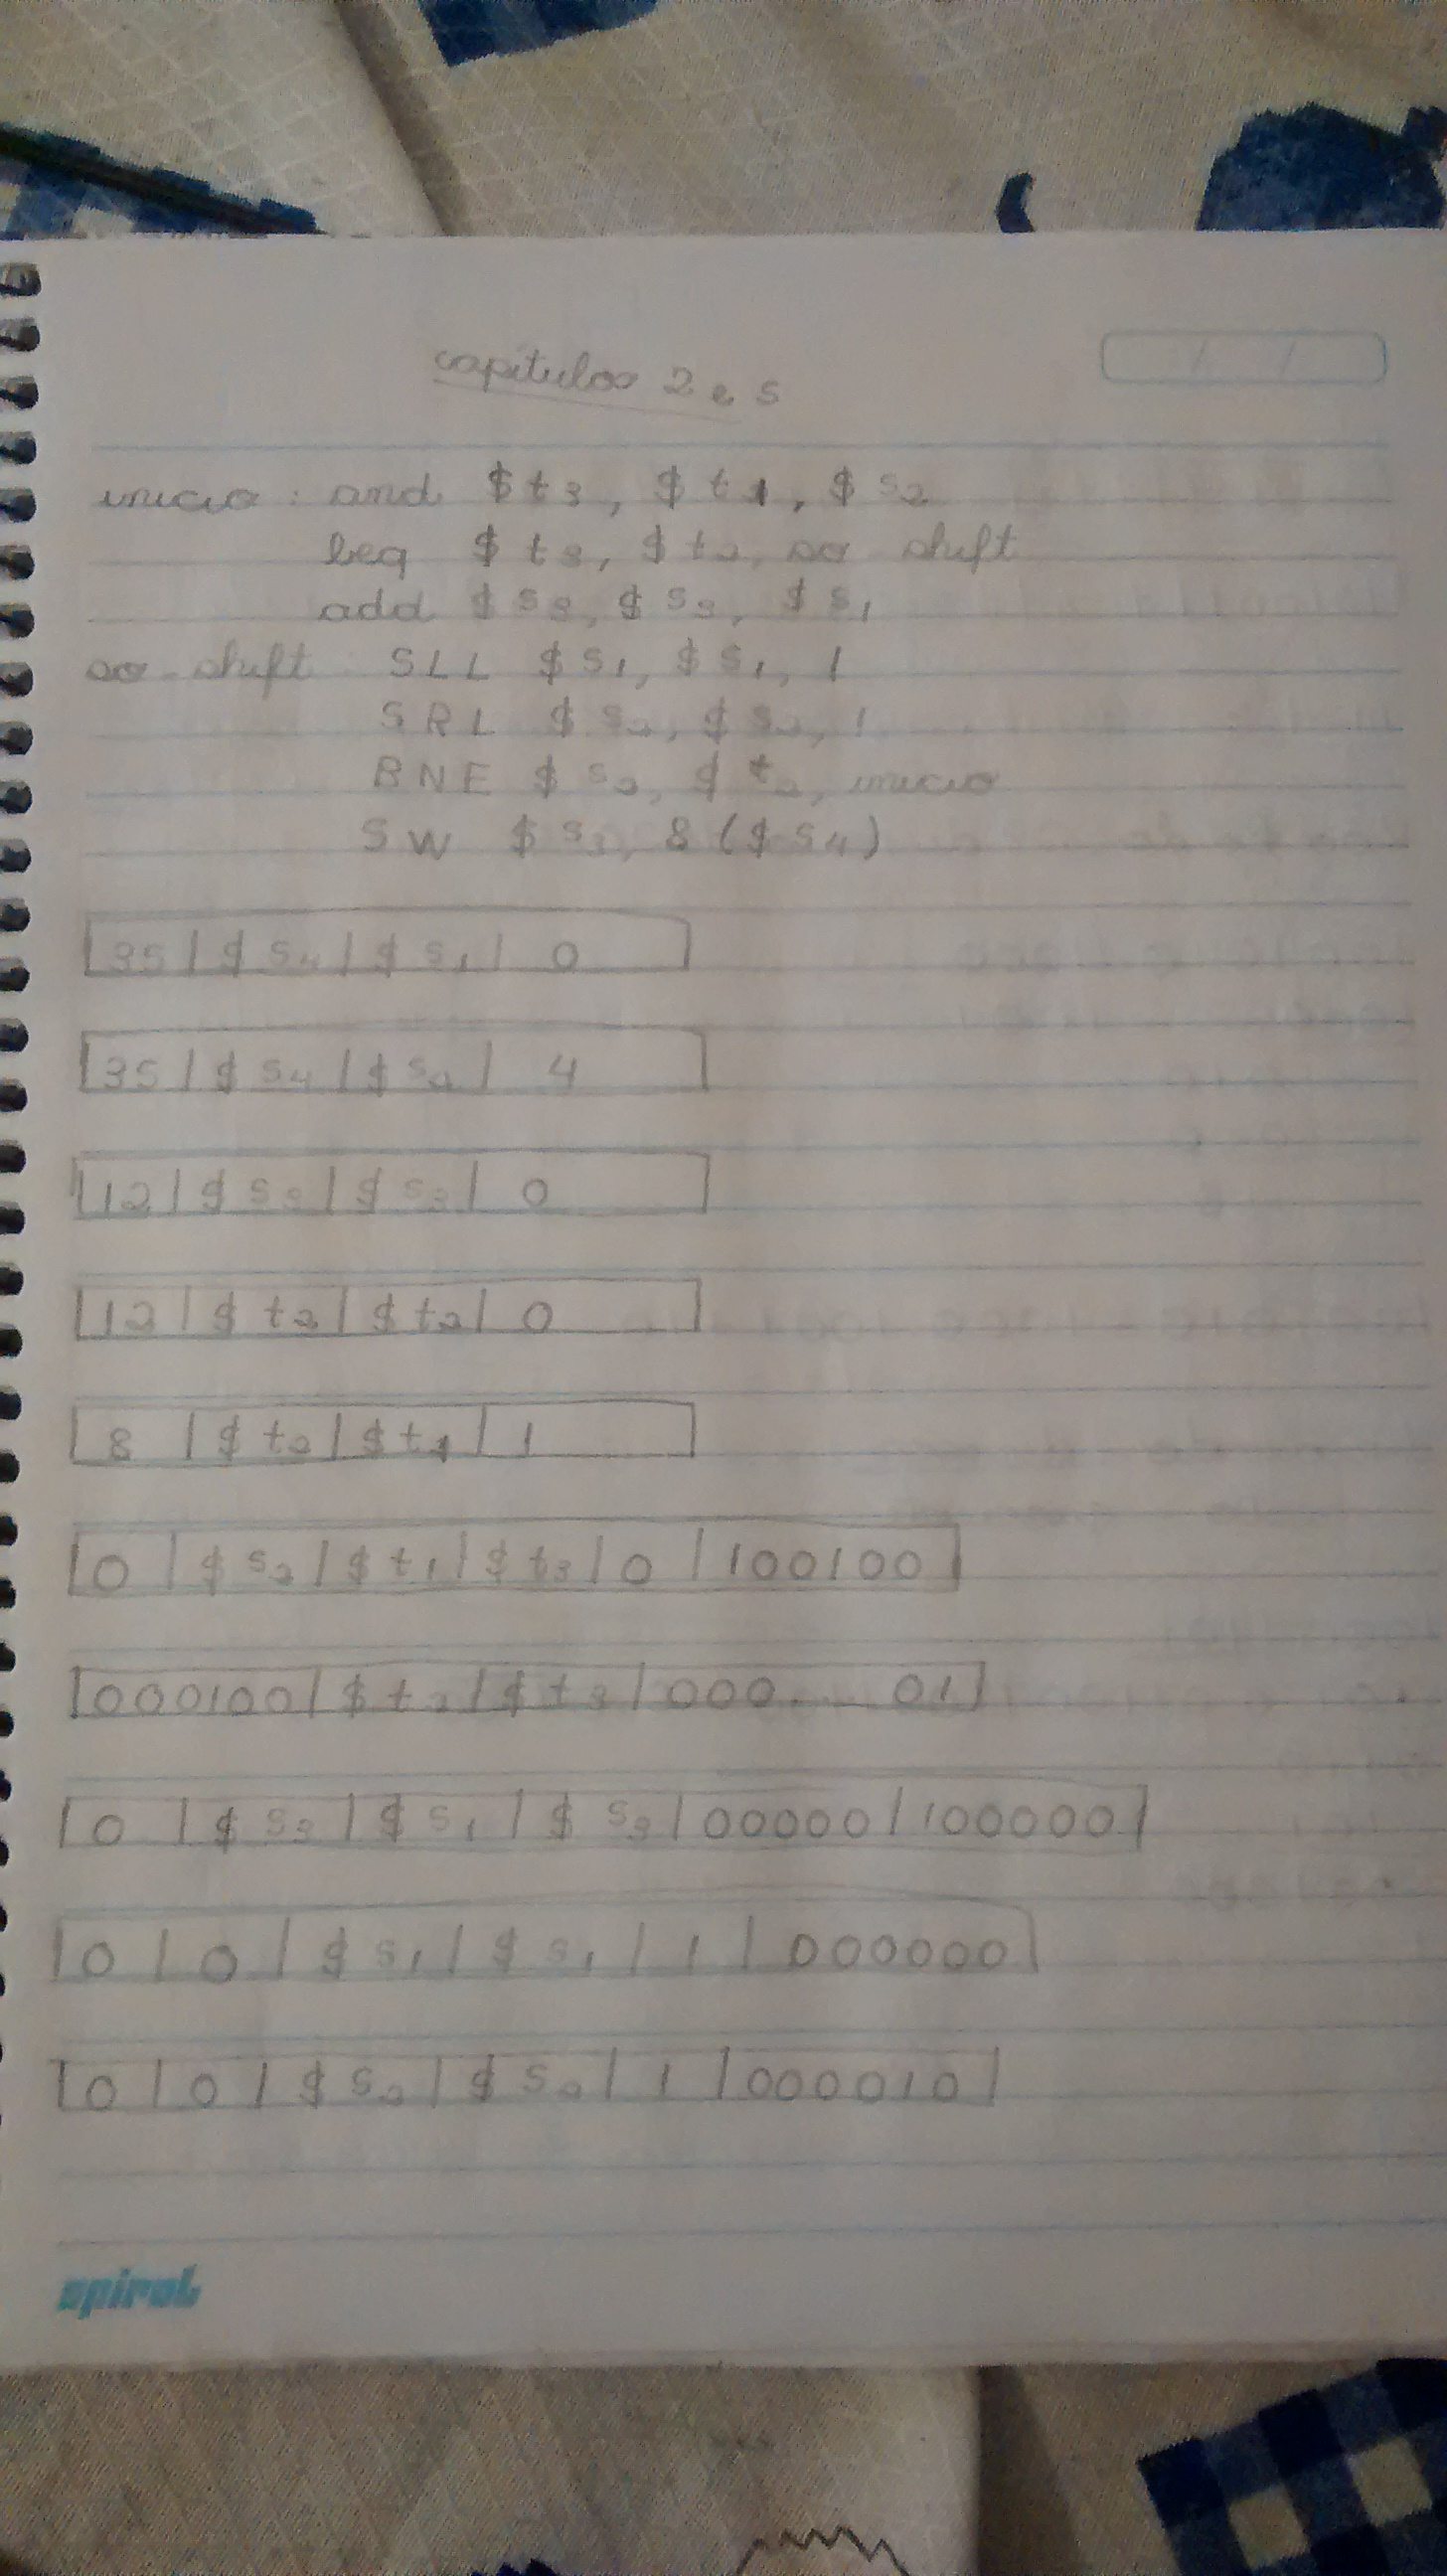 capítulos 2 e 5
inicio: and $t3, $t1, $s2
beq $t3, $t2, so shift
add $s3, $s3, $s1
so-shift: SLL $s1, $s1, 1
SRL $s2, $s2, 1
BNE $s2, $t2, inicio
SW $s3, 8($s4)
|35|$s4|$s1|0|
|35|$s4|$s2|4|
|12|$s3|$s3|0|
|12|$t2|$t2|0|
|8|$t2|$t1|1|
|0|$s2|$t1|$t3|0|100100|
|000100|$t2|$t3|000...01|
|0|$s3|$s1|$s3|00000|100000|
|0|0|$s1|$s1|1|000000|
|0|0|$s2|$s2|1|000010|
spiral